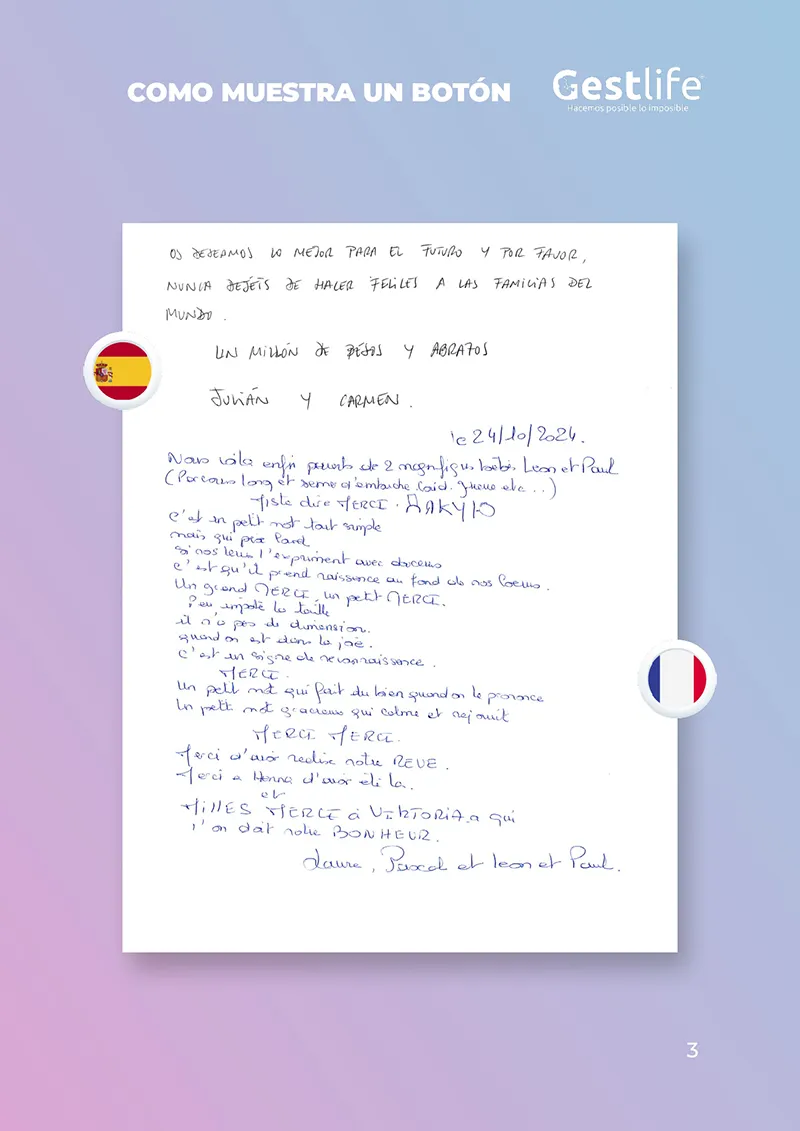 COMO MUESTRA UN BOTÓN
Gestlife
Hacemos posible lo imposible
OS DESEAMOS LO MEJOR PARA EL FUTURO Y POR FAVOR,
NUNCA DEJÉIS DE HACER FELICES A LAS FAMILIAS DEL
MUNDO.
UN MILLÓN DE BESOS Y ABRAZOS
JULIÁN Y CARMEN.
le 24/10/2024.
Nous voila enfin parents de 2 magnifiques bébés Léon et Paul
(Parcours long et semé d'embuche Covid. Guerre etc...)
Juste dire MERCI. ДЯКУЮ
C'est un petit mot tout simple
mais qui pèse lourd
si nos l'expriment avec
c'est qu'il prend naissance au fond de nos Coeurs.
Un grand MERCI, un petit MERCI.
Peu importe la taille
il n'a pas de dimension.
quand on est dans la joie.
C'est un signe de reconnaissance.
MERCI.
Un petit mot qui fait du bien quand on le prononce
Un petit mot gracieux qui calme et rejouit
MERCI MERCI.
Merci d'avoir realise notre REVE.
Merci a Hanna d'avoir été la.
et
MILLES MERCI à VIKTORIA a qui
l'on doit notre BONHEUR.
Laure, Pascal et Leon et Paul.
3